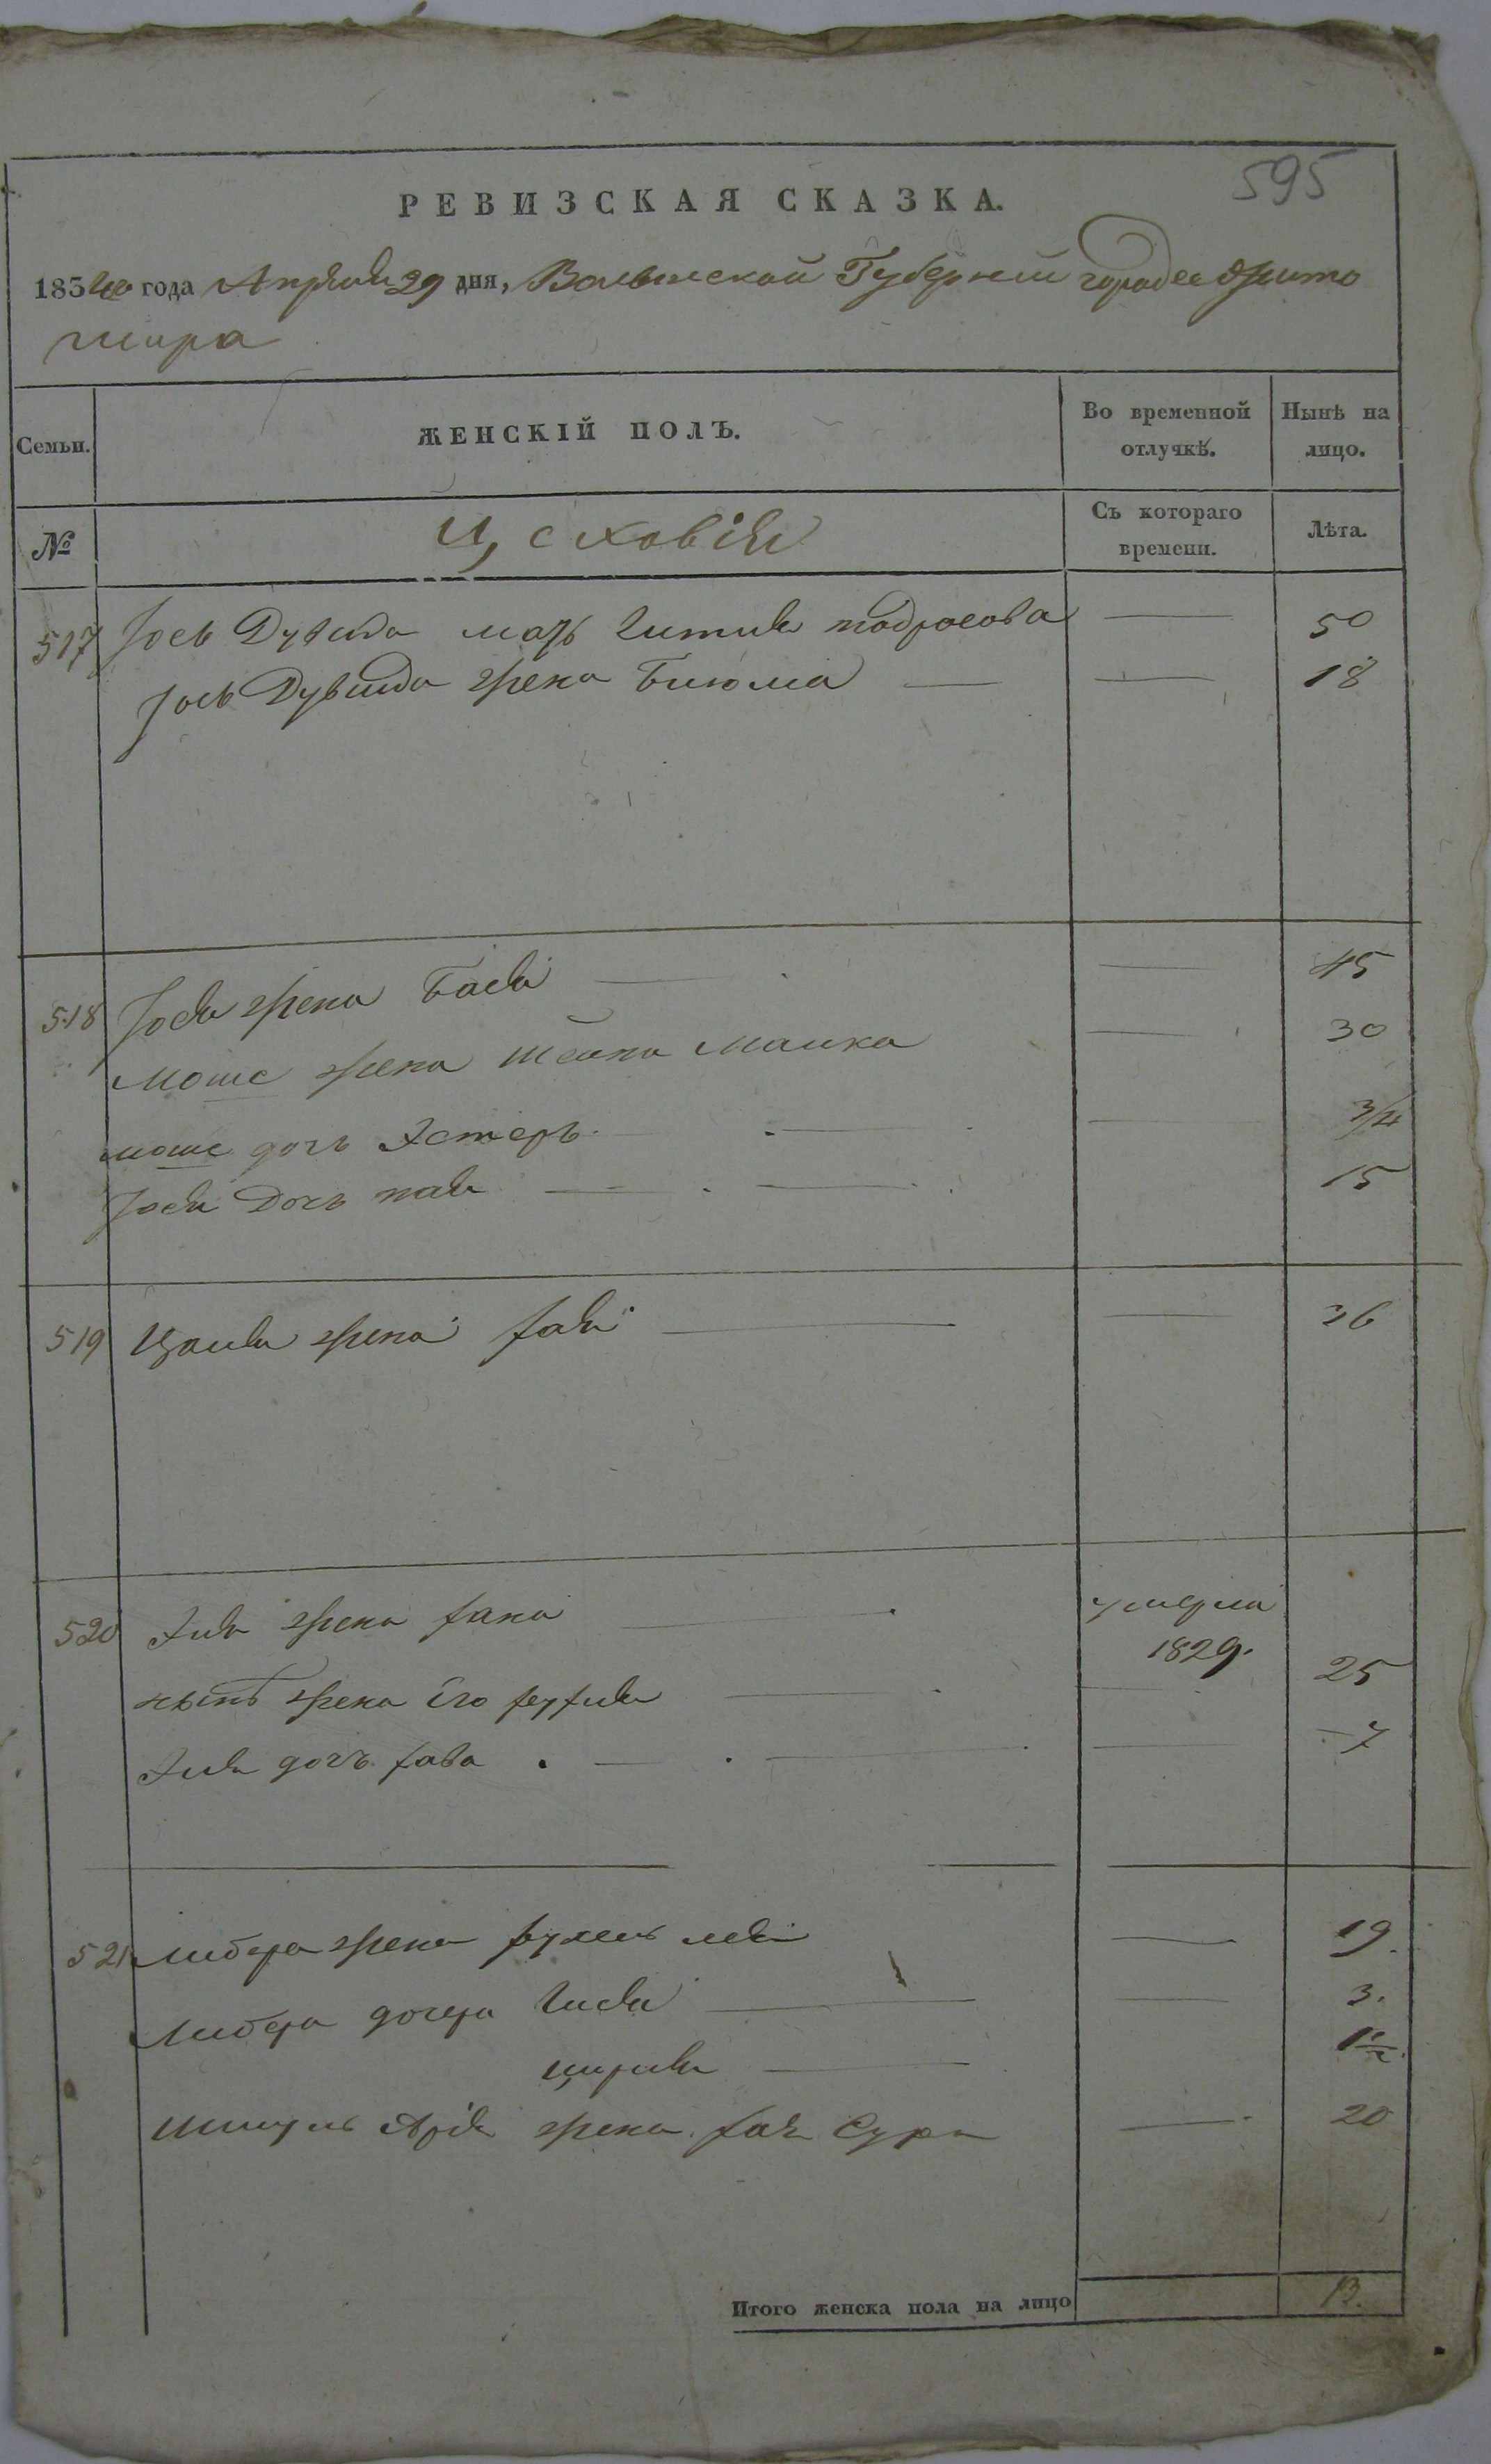 595
РЕВИЗСКАЯ СКАЗКА.
1834го года Апреля 29 дня, Волынской Губернии города Жито
мира
Семьи. ЖЕНСКІЙ ПОЛЪ. Во временной отлучкѣ. Нынѣ на лицо.
№ Съ котораго времени. Лѣта.
517 Іось Дувида мать 50
Іось Дувида жена Блюма — — 18
518 Іося жена Бася — — 45
Моше жена Малка — 30
моше дочь Эстеръ — — 3/4
Іося дочь — — 15
519 жена Хая — — 36
520 жена Хана — умерла 1829.
нынѣ жена его — — 25
дочь Хава — — 7
521 Либера жена Рухель Лея — 19.
Либера дочери Гися — — 3.
Цирля — 1 1/2.
Шмуль Арія жена Хая Сура — 20
Итого женска пола на лицо 13.